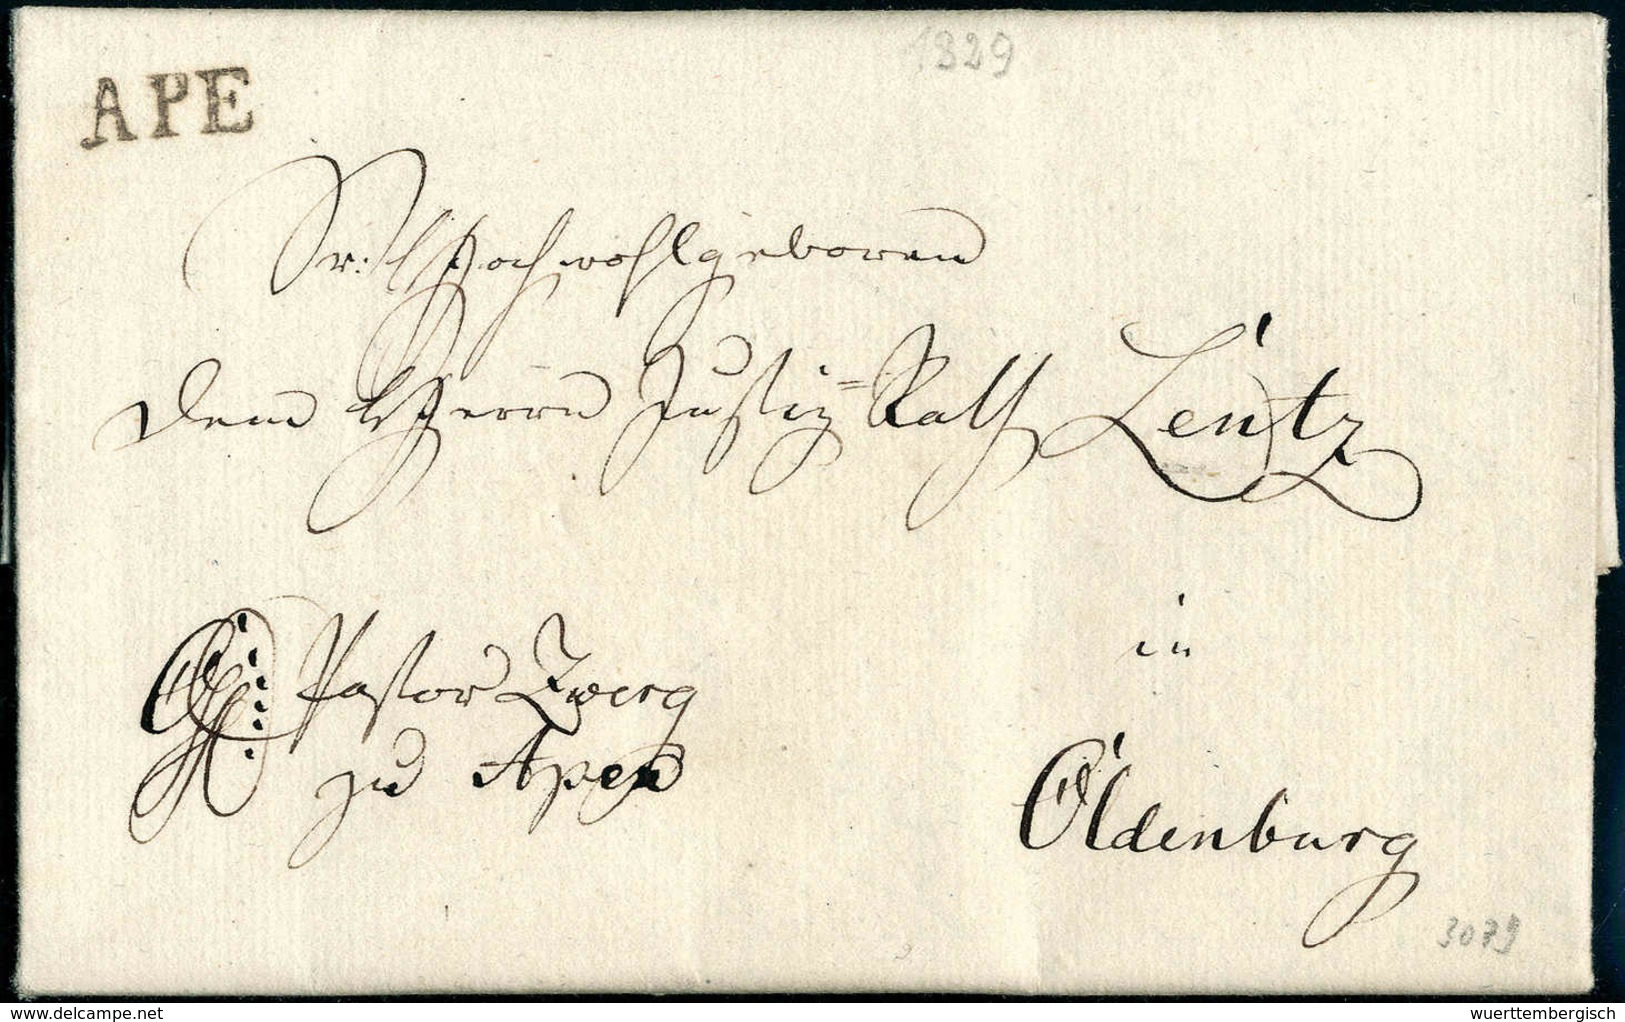 1829
APE
Sr: Hochwohlgeboren
dem Herrn Justiz=Rath Lentz
in
Pastor Zwerg
zu Apen
Oldenburg
3079
www.delcampe.net
wuerttembergisch